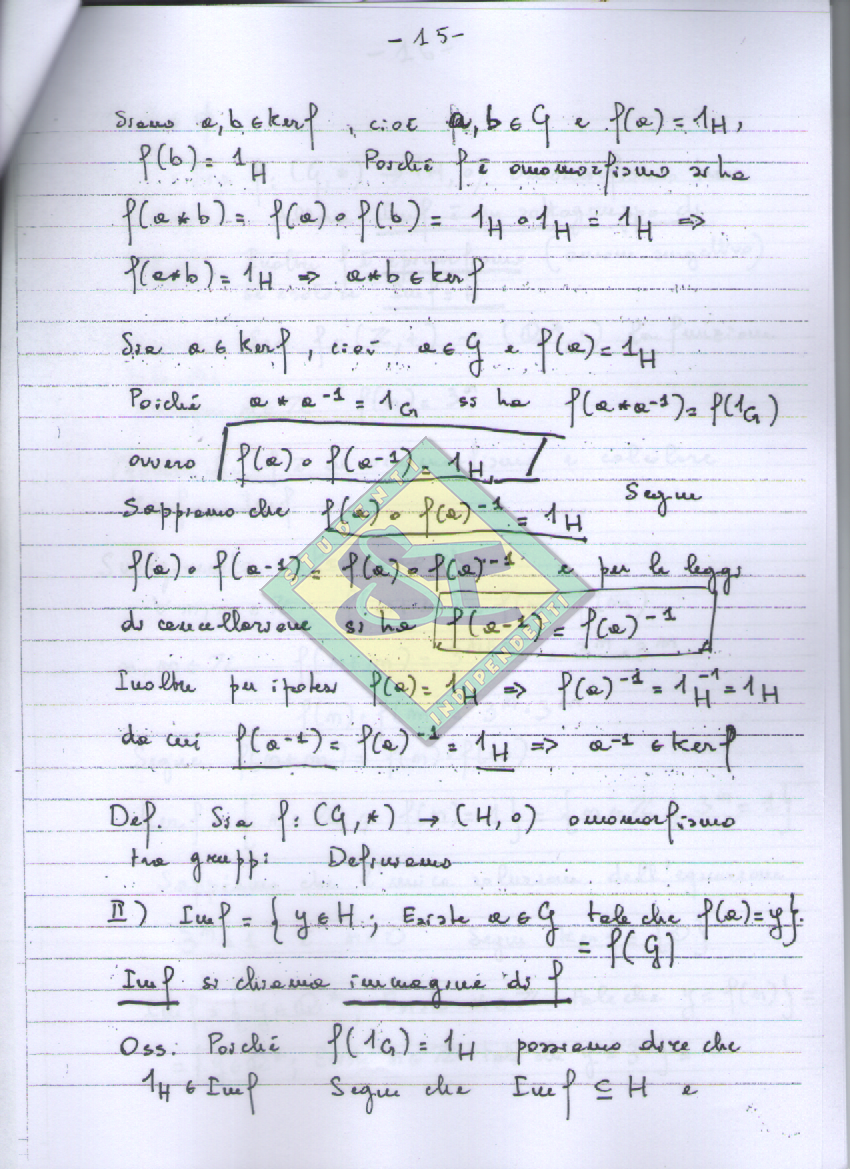 - 15 -
Siano a, b ∈ kerf , cioè a, b ∈ G e f(a) = 1H ,
f(b) = 1H Poiché f è omomorfismo si ha
f(a*b) = f(a) ∘ f(b) = 1H ∘ 1H = 1H ⇒
f(a*b) = 1H ⇒ a*b ∈ kerf
Sia a ∈ kerf , cioè a ∈ G e f(a) = 1H
Poiché a * a⁻¹ = 1G si ha f(a*a⁻¹) = f(1G)
ovvero f(a) ∘ f(a⁻¹) = 1H
Sappiamo che f(a) ∘ f(a)⁻¹ = 1H Segue
f(a) ∘ f(a⁻¹) = f(a) ∘ f(a)⁻¹ e per la legge
di cancellazione si ha f(a⁻¹) = f(a)⁻¹
Inoltre per ipotesi f(a) = 1H ⇒ f(a)⁻¹ = 1H⁻¹ = 1H
da cui f(a⁻¹) = f(a)⁻¹ = 1H ⇒ a⁻¹ ∈ kerf
Def. Sia f: (G, *) → (H, ∘) omomorfismo
tra gruppi Definiamo
II) Imf = { y ∈ H ; Esiste a ∈ G tale che f(a) = y }.
= f(G)
Imf si chiama immagine di f
Oss. Poiché f(1G) = 1H possiamo dire che
1H ∈ Imf Segue che Imf ⊆ H e
STUDENTI
SI
INDIPENDENTI